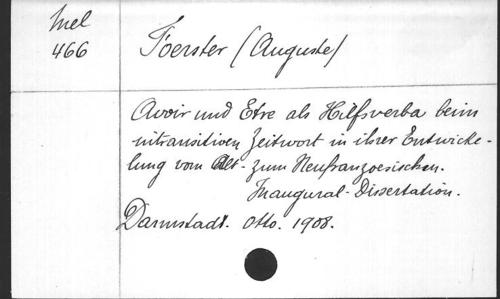 Mel
466
Foerster (Auguste)
Avoir und Etre als Hilfsverba beim
intransitiven Zeitwort in ihrer Entwicke-
lung vom Alt- zum Neufranzoesischen.
Inaugural-Dissertation.
Darmstadt. Otto. 1908.